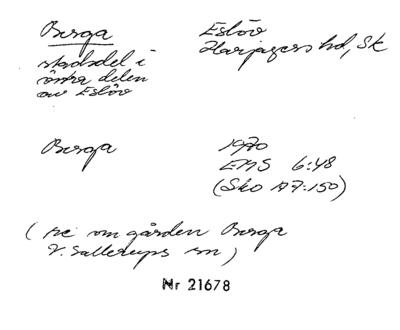 Berga
Eslöv
Harjagers hd, Sk
stadsdel i
östra delen
av Eslöv
Berga
1970
EMS 6:48
(Sko A7:150)
(se om gården Berga
V. Sallerups sn)
Nr 21678